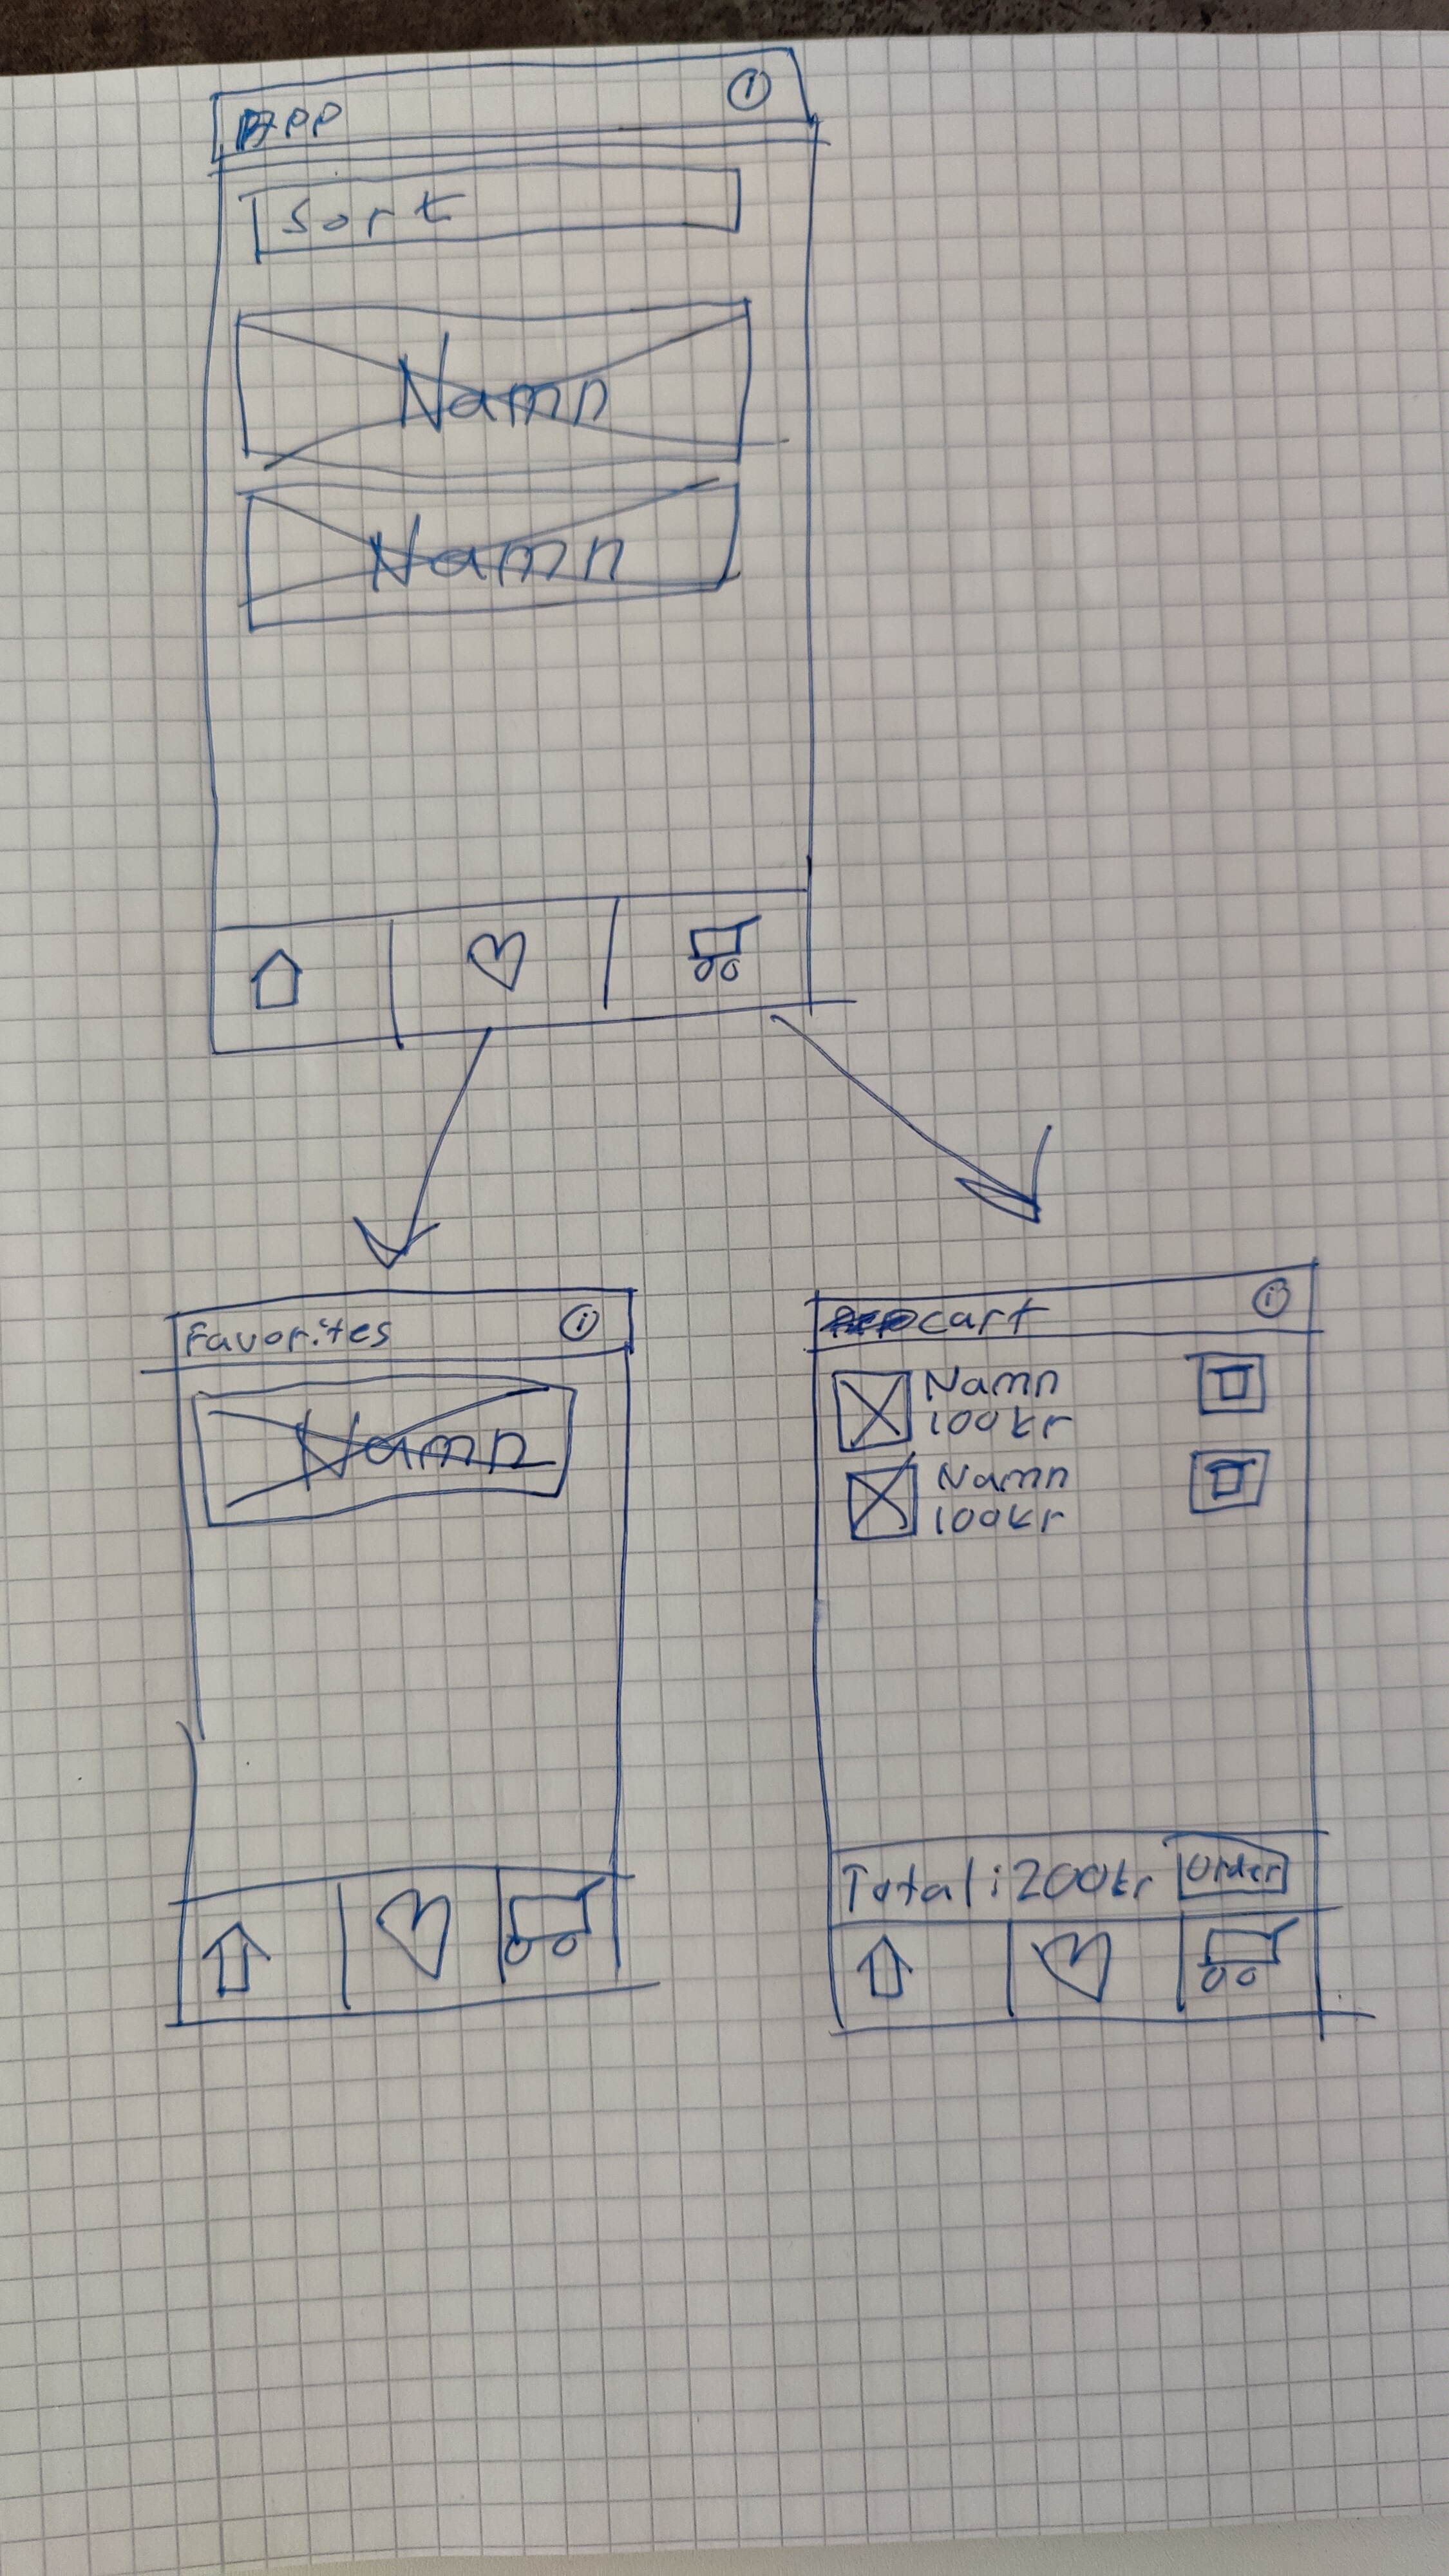 App
i
Sort
Namn
Namn
Favorites
i
Namn
cart
i
Namn
100kr
Namn
100kr
Total: 200kr
Order